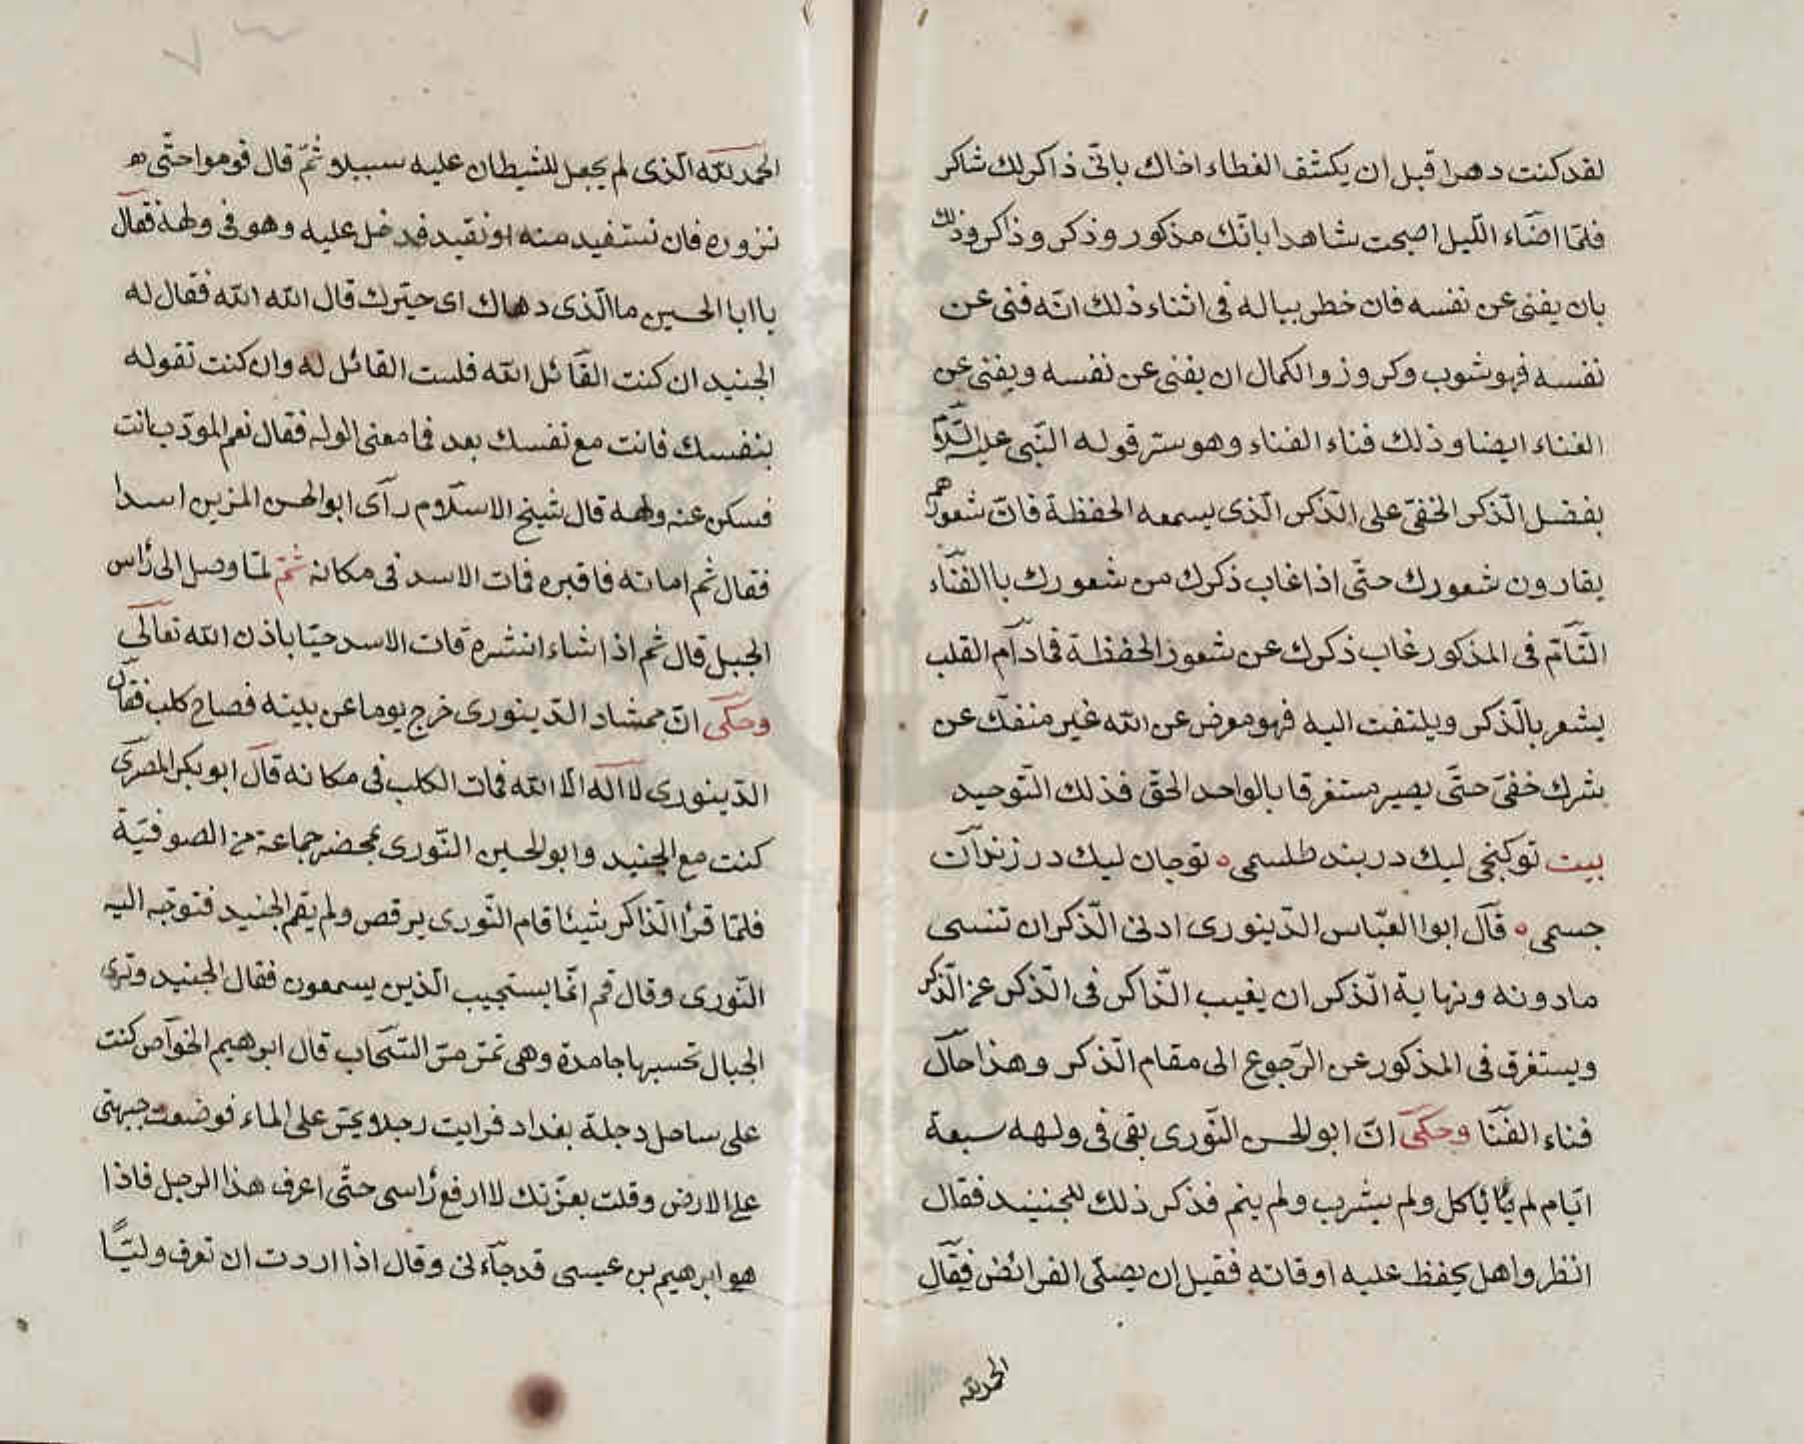 لقد كنت دهرا قبل ان يكشف الغطاء اخاك بانّى ذاكر لك شاكر
فلمّا اضاء الّليل اصبحت شاهدا بانّك مذكور وذكر وذاكر وذلك
بان يفنى عن نفسه فان خطر بباله فى اثناء ذلك انّه فنى عن
نفسه فهو شوب وكروزو الكمال ان يفنى عن نفسه ويفنى عن
الفناء ايضا وذلك فناء الفناء وهو ستر قوله النّبى عليه السّلام
بفضل الّذكر الخفىّ على الّذكر الّذى يسمعه الحفظة فانّ شعورهم
يقارون شعورك حتّى اذا غاب ذكرك من شعورك باالفنّاء
التّامّ فى المذكور غاب ذكرك عن شعور الحفظة فمادام القلب
يشعر بالّذكر ويلتفت اليه فهو معرض عن الله غير منفكّ عن
شرك خفىّ حتّى يصير مستغرقا بالواحد الحقّ فذلك التّوحيد
بيت توكنجى ليك دربند طلسمى ه توجان ليك در زندان
جسمى ه قال ابوا العبّاس الدّينورى ادنى الّذكر ان تنسى
مادونه ونهاية الّذكر ان يغيب الذّاكر فى الّذكر عن الّذكر
ويستغرق فى المذكور عن الرّجوع الى مقام الّذكر وهذا حال
فناء الفنّا وحكى انّ ابو الحسن النّورى بقى فى ولهه سبعة
ايّام لم يأيأكل ولم يشرب ولم ينم فذكر ذلك للجنيند فقال
انظروا هل يحفظ عليه اوقاته فقيل ان يصلّى الفرائض فقال
الحمد لله
الحمد لله الّذى لم يجعل للشيطان عليه سبيلا وثمّ قال قوموا حتّى ه
نزوره فان نستفيد منه او نقيد فدخل عليه وهو فى ولهه فقال
يا ابا الحسين ما الّذى دهاك اى حيّرك قال الله الله فقال له
الجنيد ان كنت القائل الله فلست القائل له وان كنت تقوله
بنفسك فانت مع نفسك بعد فما معنى الوله فقال نعم المودّب انت
فسكن عنه ولهه قال شيخ الاسلام رآى ابو الحسن المزين اسدا
فقال ثم اماته فاقبره فمات الاسد فى مكانه ثمّ لمّا وصل الى رأس
الجبل قال ثم اذا شاء انشره قات الاسد حيّا باذن الله تعالى
وحكى انّ ممشاد الدّينورى خرج يوما عن بيته فصاح كلب فقال
الدّينورى لا اله الّا الله فمات الكلب فى مكانه قال ابو بكر المصرى
كنت مع الجنيد وابو الحسين النّورى بمحضر جماعة من الصوفيّة
فلمّا قرأ الذّاكر شيئا قام النّورى يرقص ولم يقم الجنيد فتوجّه اليه
النّورى وقال قم انّما يستجيب الّذين يسمعون فقال الجنيد وترى
الجبال تحسبها جامدة وهى تمرّ مرّ السّحاب قال ابرهيم الخواّص كنت
على ساحل دجلة بغداد فرايت رجلا ويمرّ على الماء فوضعت جبهتى
على الارض وقلت بعزّتك لا ارفع رأسى حتّى اعرف هذا الرجل فاذا
هو ابرهيم بن عيسى قد جاءنى وقال اذا اردت ان تعرف وليًّا